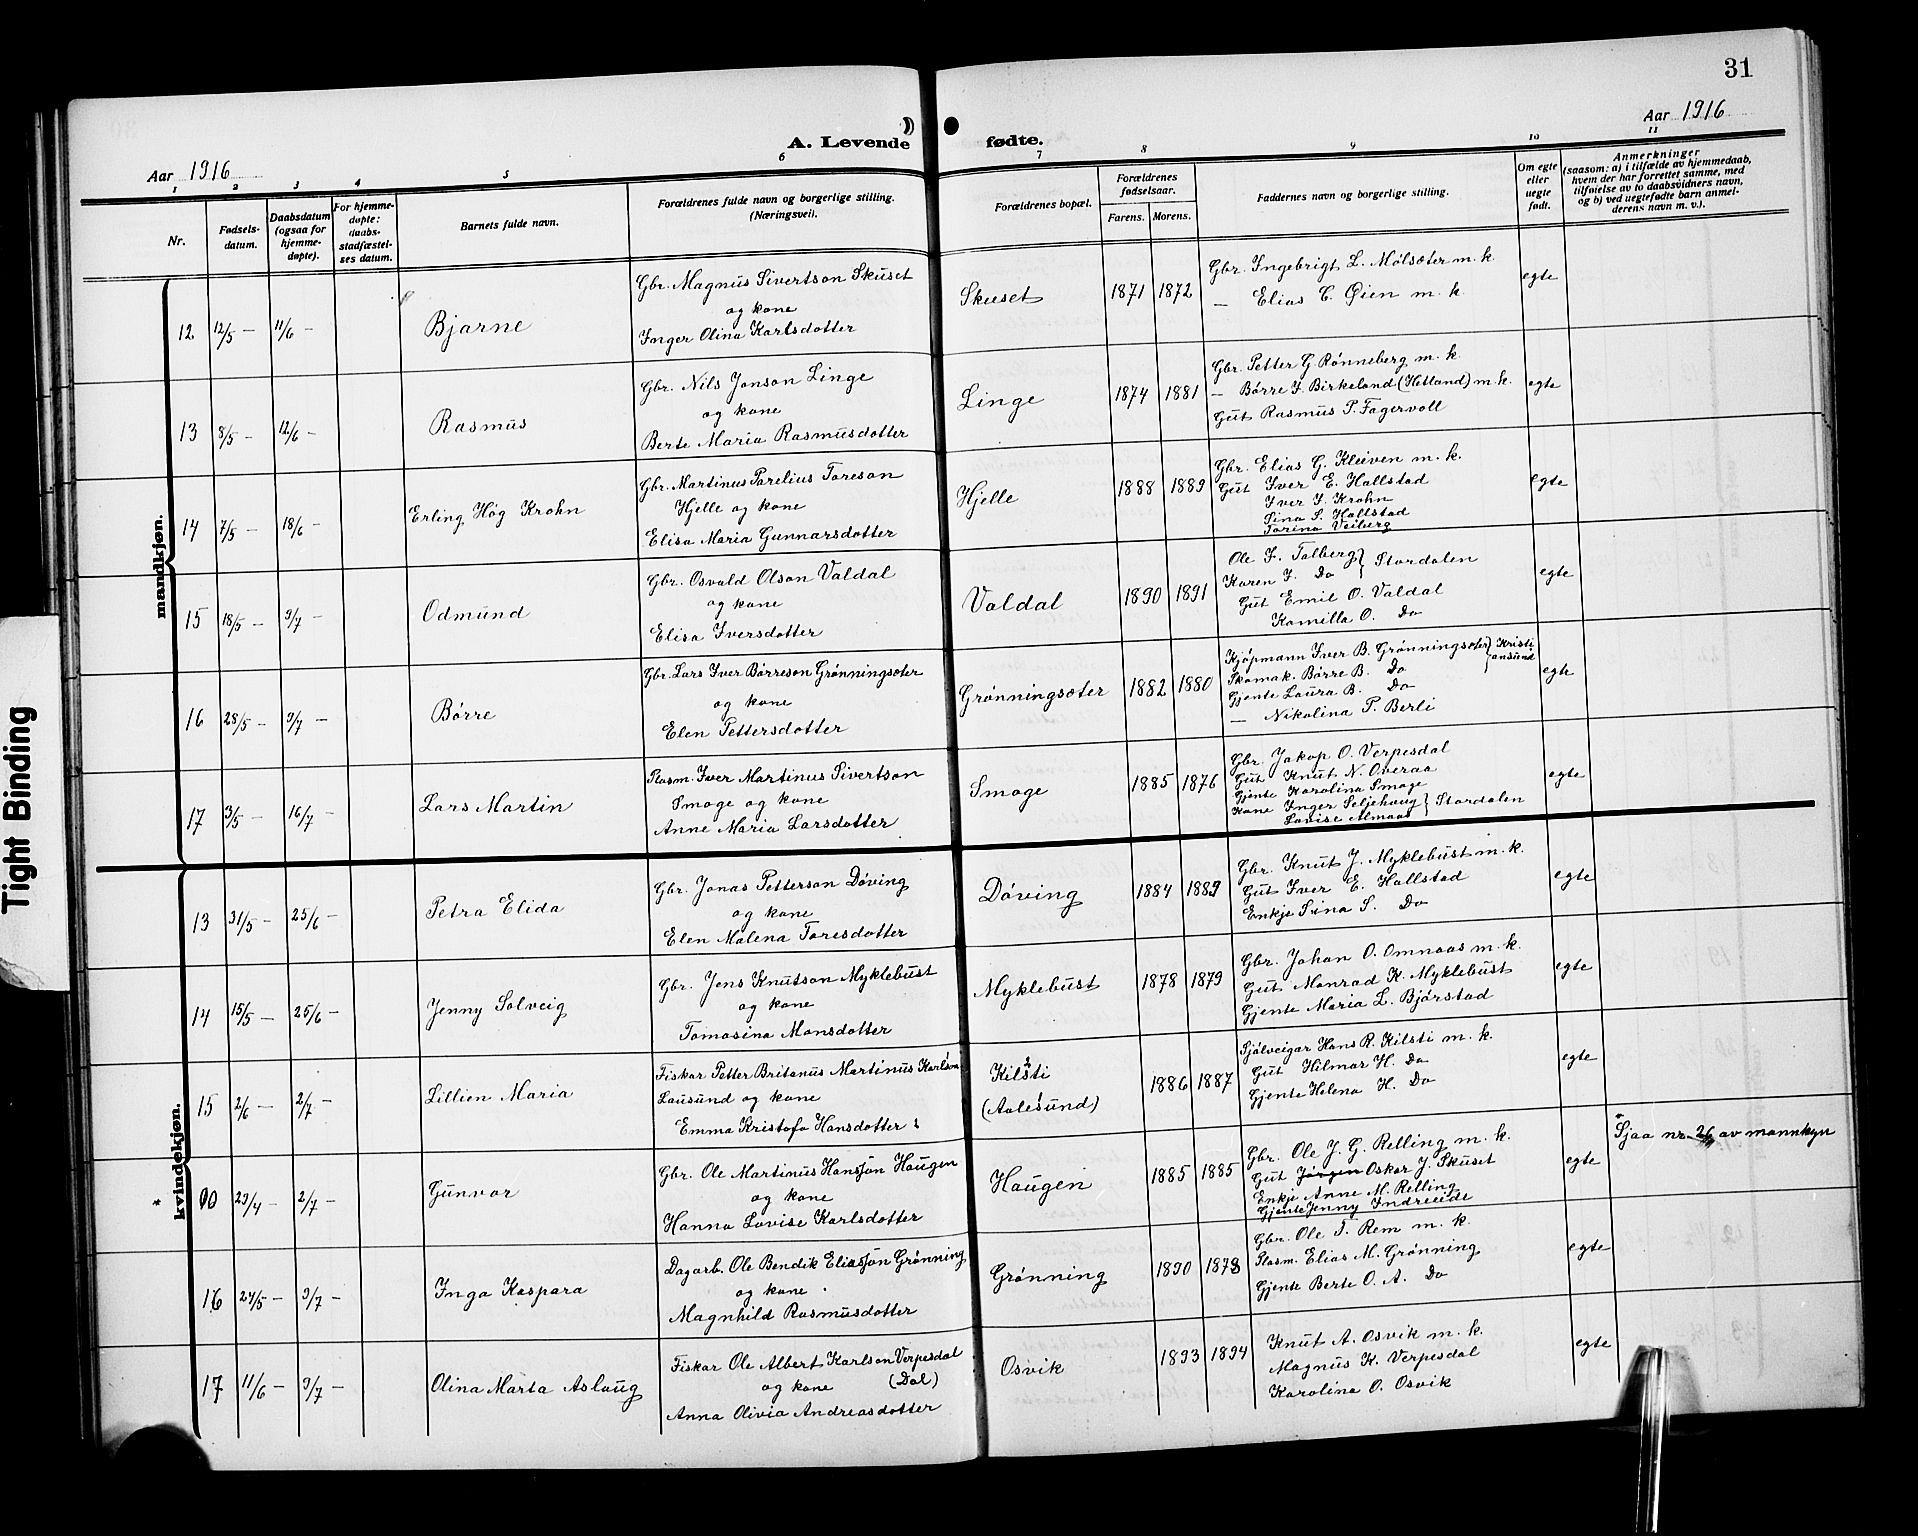 31
Aar 1916
A. Levende fødte.
Aar 1916
1 2 3 4 5 6 7 8 9 10 11
Nr.
Fødselsdatum.
Daabsdatum (ogsaa for hjemmedøpte).
For hjemmedøpte: daabsstadfæstelses datum.
Barnets fulde navn.
Forældrenes fulde navn og borgerlige stilling. (Næringsvei).
Forældrenes bopæl.
Forældrenes fødselsaar.
Farens. Morens.
Faddernes navn og borgerlige stilling.
Om egte eller uegte født.
Anmerkninger
(saasom: a) i tilfælde av hjemmedaab, hvem der har forrettet samme, med tilføielse av to daabsvidners navn, og b) ved uegtefødte barn anmelderens navn m. v.).
mandkjøn.
12 12/5 — 11/6 — Bjarne
Gbr. Magnus Sivertson Skuset
og kone
Inger Olina Karlsdotter
Skuset 1871 1872
Gbr. Ingebrigt L. Mølsæter m. k.
— Elias C. Øien m. k.
egte
13 8/5 — 12/6 — Rasmus
Gbr. Nils Jonson Linge
og kone
Berte Maria Rasmusdotter
Linge 1874 1881
Gbr. Petter G Rønneberg m. k.
— Børre J. Birkeland (Hetland) m. k.
Gut Rasmus P. Fagervoll
egte
14 7/5 — 18/6 — Erling Høg Krohn
Gbr. Martinus Parelius Toreson
Hjelle og kone
Elisa Maria Gunnarsdotter
Hjelle 1888 1889
Gbr. Elias G. Kleiven m. k.
Gut Iver E. Hallstad
Iver J. Krohn
Sina S. Hallstad
Torina Veiberg
egte
15 18/5 — 9/7 — Odmund
Gbr. Osvald Olson Valdal
og kone
Elisa Iversdotter
Valdal 1890 1891
Ole I. Talberg } Stordalen
Karen I. Do
Gut Emil O. Valdal
Kamilla O. Do
egte
16 28/5 — 9/7 — Børre
Gbr. Lars Iver Børreson Grønningsæter
og kone
Elen Pettersdotter
Grønningsæter 1882 1880
Kjøpmann Iver B. Grønningsæter } Kristiansund
Skomak. Børre B. Do
Gjente Laura B. Do
— Nikolina P. Berli
egte
17 3/5 — 16/7 — Lars Martin
Plasm. Iver Martinus Sivertson
Smoge og kone
Anne Maria Larsdotter
Smoge 1885 1876
Gbr. Jakop O. Verpesdal
Gut Knut N. Overaa
Gjente Karolina Smoge
Kone Inger Seljehaug } Stordalen
Lovise Almaas
egte
kvindekjøn.
13 31/5 — 25/6 — Petra Elida
Gbr. Jonas Petterson Døving
og kone
Elen Malena Toresdotter
Døving 1884 1889
Gbr. Knut J. Myklebust m. k.
Gut Iver E. Hallstad
Enkje Sina S. Do
egte
14 15/5 — 25/6 — Jenny Solveig
Gbr. Jens Knutson Myklebust
og kone
Tomasina Monsdotter
Myklebust 1878 1879
Gbr. Johan O. Omnaas m. k.
Gut Monrad K. Myklebust
Gjente Maria L. Bjørstad
egte
15 2/6 — 2/7 — Lillien Maria
Fiskar Petter Britanus Martinus Karlson
Lausund og kone
Emma Kristofa Hansdotter
Kilsti
(Aalesund)
1886 1887
Sjølveigar Hans R. Kilsti m. k.
Gut Hilmar H. Do
Gjente Helena H. Do
egte
* 00 29/4 — 2/7 — Gunvor
Gbr. Ole Martinus Hansson Haugen
og kone
Hanna Lovise Karlsdotter
Haugen 1885 1885
Gbr. Ole J. G. Relling m. k.
Gut Jørgen Oskar J. Skuset
Enkje Anne M. Relling
Gjente Jenny Indreeide
egte
Sjaa nr 26 av mannkyn
16 24/5 — 9/7 — Inga Kaspara
Dagarb. Ole Bendik Eliasson Grønning
og kone
Magnhild Rasmusdotter
Grønning 1890 1878
Gbr. Ole T. Rem m. k.
Plasm. Elias M. Grønning
Gjente Berte O. A. Do
egte
17 11/6 — 9/7 — Olina Marta Aslaug
Fiskar Ole Albert Karlson Verpesdal
og kone (Dal)
Anna Olivia Andreasdotter
Osvik 1893 1894
Knut A. Osvik m. k.
Magnus K. Verpesdal
Karolina O. Osvik
egte
Tight Binding